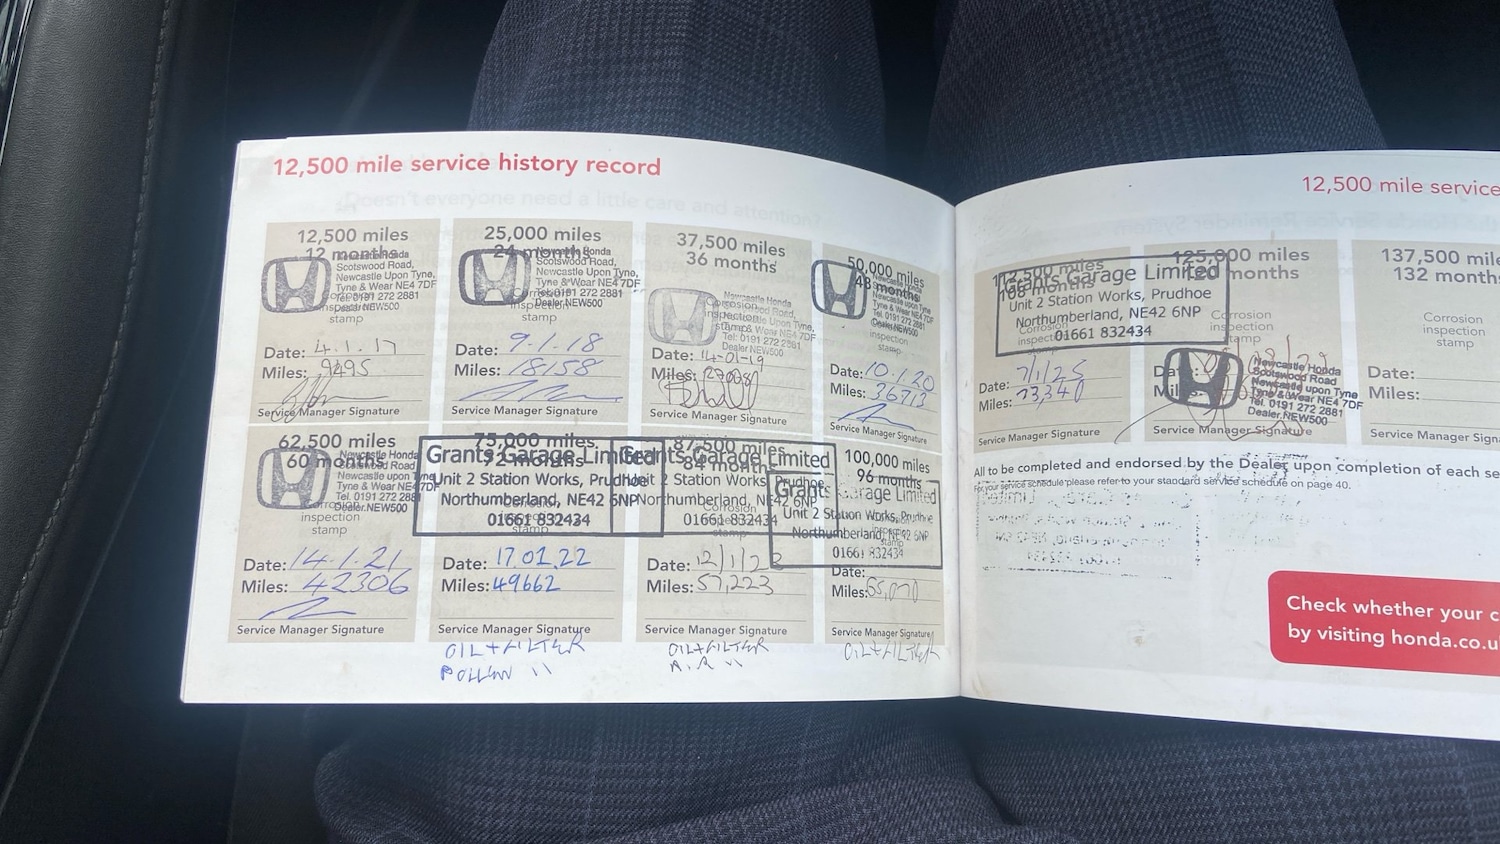 12,500 mile service history record
12,500 miles
12 months
Newcastle Honda
Scotswood Road,
Newcastle Upon Tyne,
Tyne & Wear NE4 7DF
Tel: 0191 272 2881
Dealer.NEW500
Corrosion
inspection
stamp
Date: 4.1.17
Miles: 9495
Service Manager Signature
25,000 miles
24 months
Newcastle Honda
Scotswood Road,
Newcastle Upon Tyne,
Tyne & Wear NE4 7DF
Tel: 0191 272 2881
Dealer.NEW500
Corrosion
inspection
stamp
Date: 9.1.18
Miles: 18158
Service Manager Signature
37,500 miles
36 months
Newcastle Honda
Scotswood Road,
Newcastle Upon Tyne,
Tyne & Wear NE4 7DF
Tel: 0191 272 2881
Dealer NEW500
Corrosion
inspection
stamp
Date: 14-01-19
Miles: 27008
Service Manager Signature
50,000 miles
48 months
Newcastle Honda
Scotswood Road,
Newcastle upon Tyne
Tyne & Wear NE4 7DF
Tel. 0191 272 2881
Dealer.NEW500
inspection
stamp
Date: 10.1.20
Miles: 36713
Service Manager Signature
62,500 miles
60 months
Newcastle Honda
Scotswood Road
Newcastle upon Tyne
Tyne & Wear NE4 7DF
Tel. 0191 272 2881
Dealer.NEW500
Corrosion
inspection
stamp
Date: 14.1.21
Miles: 42306
Service Manager Signature
75,000 miles
72 months
Grants Garage Limited
Unit 2 Station Works, Prudhoe
Northumberland, NE42 6NP
01661 832434
Corrosion
stamp
Date: 17.01.22
Miles: 49662
Service Manager Signature
OIL+FILTER
POLLEN "
87,500 miles
84 months
Grants Garage Limited
Unit 2 Station Works, Prudhoe
Northumberland, NE42 6NP
01661 832434
Corrosion
stamp
Date: 12/1/23
Miles: 57,223
Service Manager Signature
OIL+FILTER
AIR "
100,000 miles
96 months
Grants Garage Limited
Unit 2 Station Works, Prudhoe
Northumberland, NE42 6NP
01661 832434
stamp
Date:
Miles: 65,070
Service Manager Signature
OIL+FILTER
12,500 mile service
112,500 miles
108 months
Grants Garage Limited
Unit 2 Station Works, Prudhoe
Northumberland, NE42 6NP
01661 832434
Corrosion
inspection
stamp
Date: 7/1/25
Miles: 73,340
Service Manager Signature
125,000 miles
months
Corrosion
inspection
stamp
Newcastle Honda
Scotswood Road
Newcastle upon Tyne
Tyne & Wear NE4 7DF
Tel. 0191 272 2881
Dealer.NEW500
Service Manager Signature
137,500 mile
132 month
Corrosion
inspection
stamp
Date:
Miles:
Service Manager Sign
All to be completed and endorsed by the Dealer upon completion of each se
For your service schedule please refer to your standard service schedule on page 40.
Check whether your c
by visiting honda.co.u